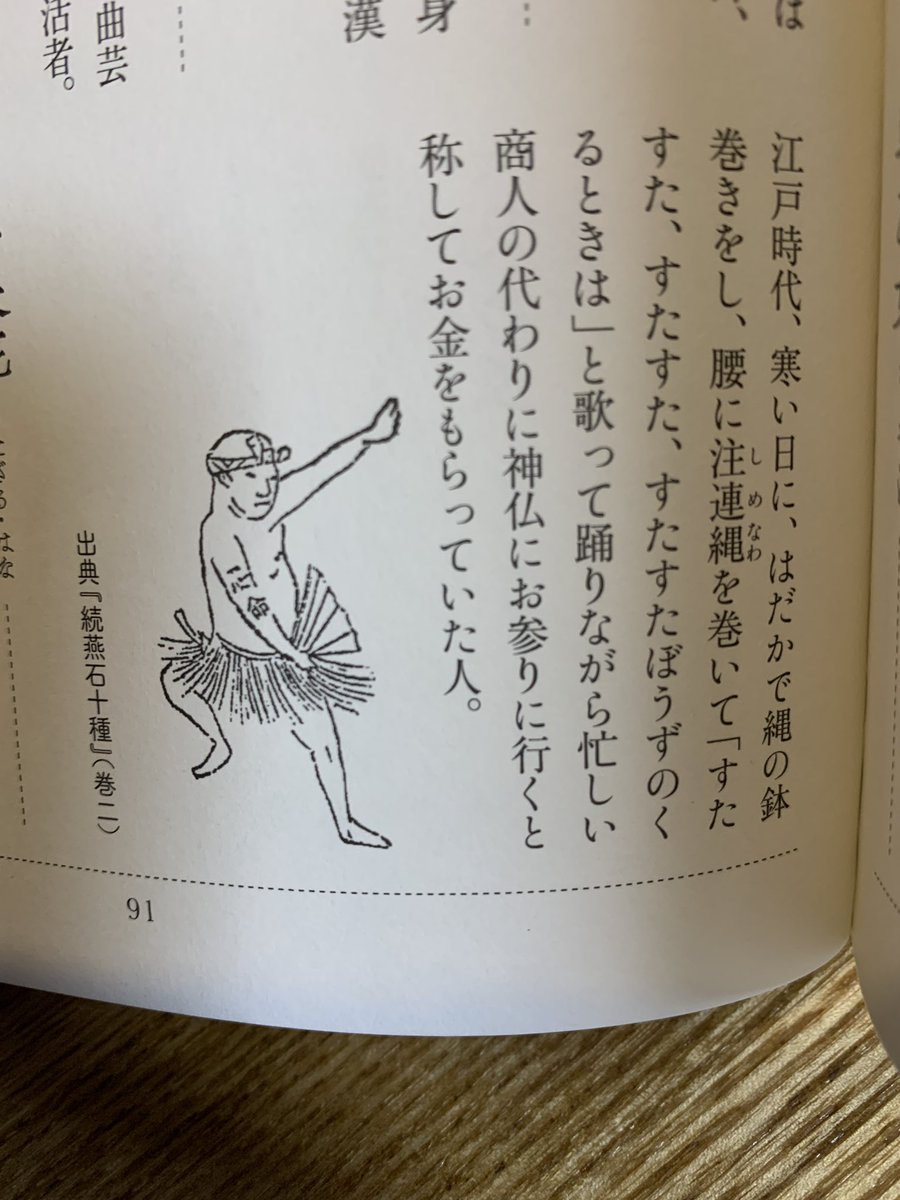 は
身
漢
曲芸
活者。
江戸時代、寒い日に、はだかで縄の鉢
巻きをし、腰に注連縄を巻いて「すた
しめなわ
すた、すたすた、すたすたぼうずのく
るときは」と歌って踊りながら忙しい
商人の代わりに神仏にお参りに行くと
称してお金をもらっていた人。
出典『続燕石十種』（巻二）
91